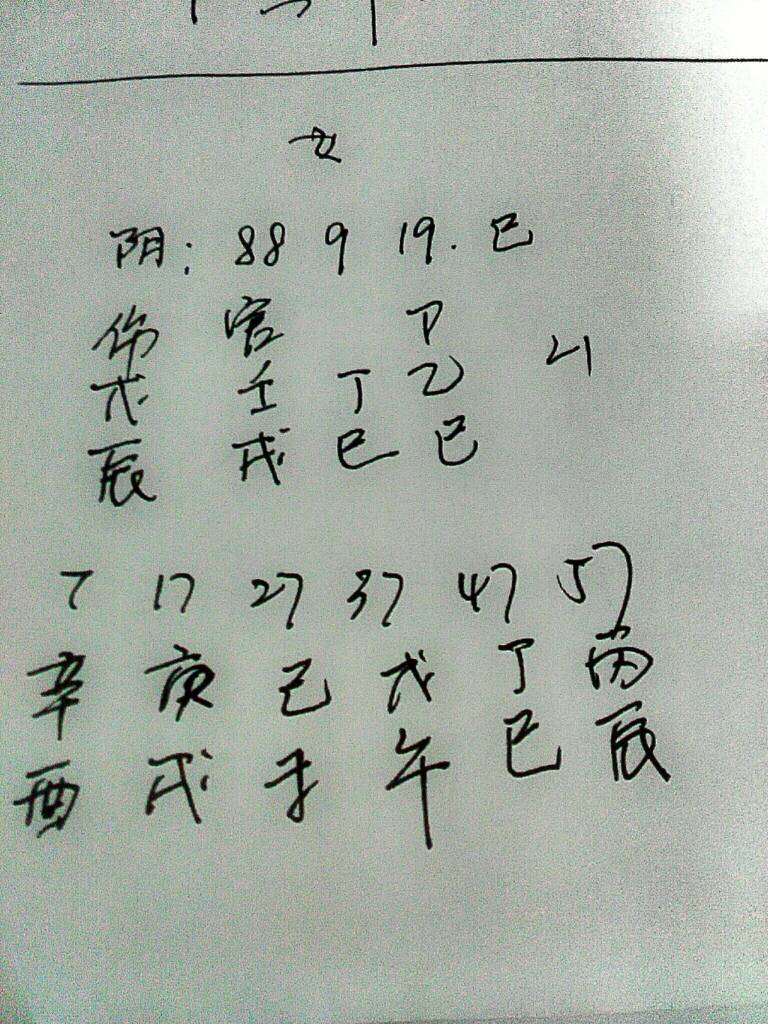 女
阴: 88 9 19. 巳
伤 官 卩
戊 壬 丁 乙 21
辰 戌 巳 巳
7 17 27 37 47 57
辛 庚 己 戊 丁 丙
酉 戌 午 巳 辰